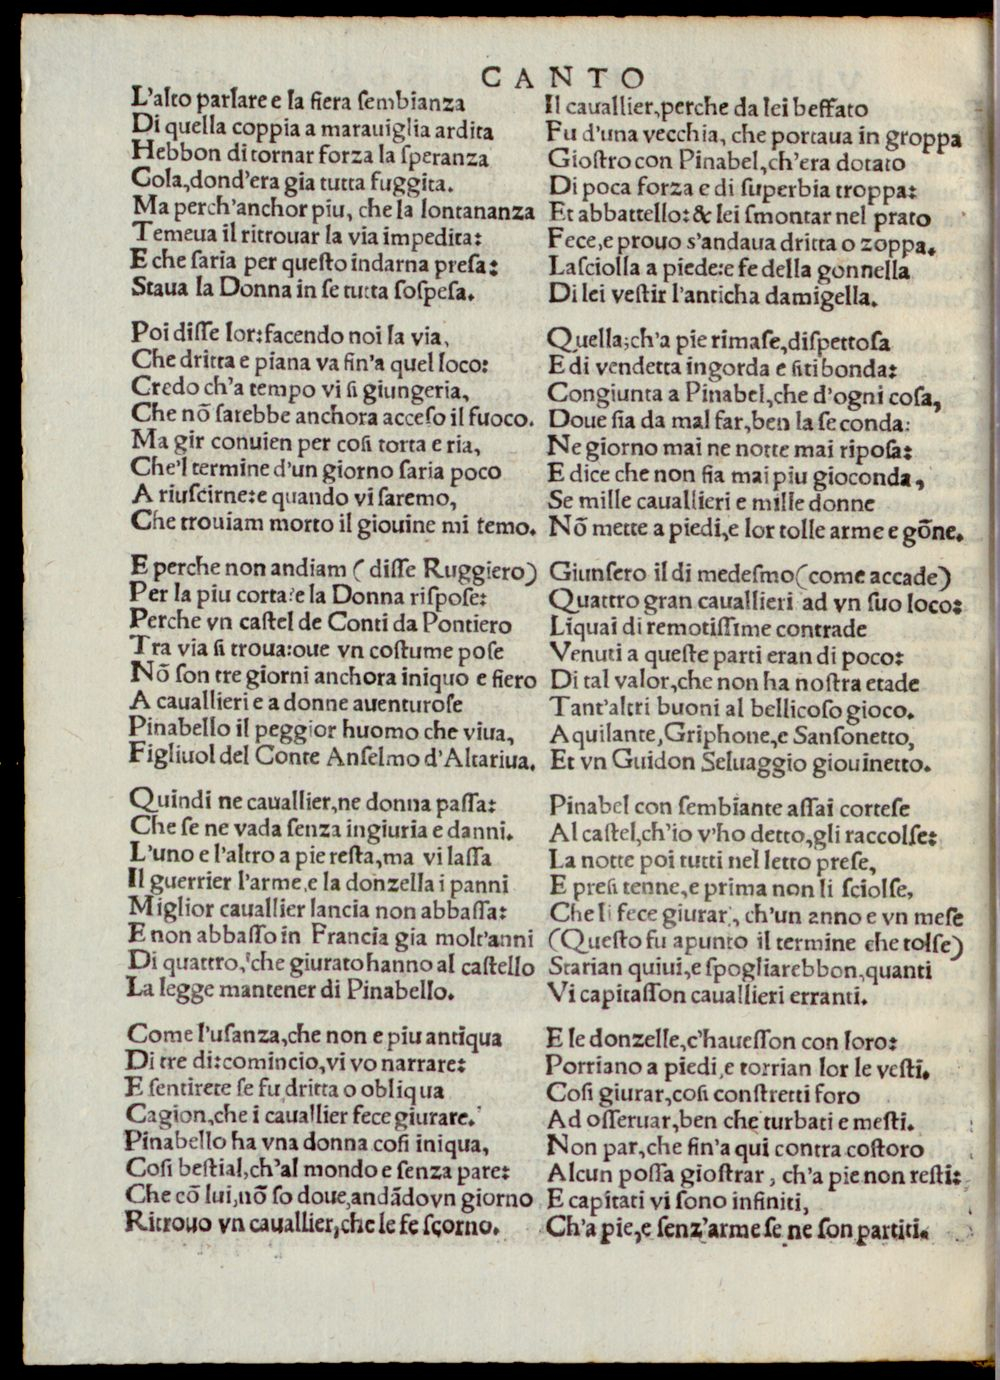 CANTO
L'alto parlare e la fiera sembianza
Di quella coppia a marauiglia ardita
Hebbon di tornar forza la speranza
Cola, dond'era gia tutta fuggita.
Ma perch'anchor piu, che la lontananza
Temeua il ritrouar la via impedita:
E che saria per questo indarna presa:
Staua la Donna in se tutta sospesa.
Poi disse lor: facendo noi la via,
Che dritta e piana va fin'a quel loco:
Credo ch'a tempo vi si giungeria,
Che nõ sarebbe anchora acceso il fuoco.
Ma gir conuien per cosi torta e ria,
Che'l termine d'un giorno saria poco
A riuscirne: e quando vi saremo,
Che trouiam morto il giouine mi temo.
E perche non andiam (disse Ruggiero)
Per la piu corta? e la Donna rispose:
Perche vn castel de Conti da Pontiero
Tra via si troua: oue vn costume pose
Nõ son tre giorni anchora iniquo e fiero
A cauallieri e a donne auenturose
Pinabello il peggior huomo che viua,
Figliuol del Conte Anselmo d'Altariua.
Quindi ne cauallier, ne donna passa:
Che se ne vada senza ingiuria e danni.
L'uno e l'altro a pie resta, ma vi lassa
Il guerrier l'arme, e la donzella i panni
Miglior cauallier lancia non abbassa:
E non abbasso in Francia gia molt'anni
Di quattro, che giurato hanno al castello
La legge mantener di Pinabello.
Come l'usanza, che non e piu antiqua
Di tre di: comincio, vi vo narrare:
E sentirete se fu dritta o obliqua
Cagion, che i cauallier fece giurare.
Pinabello ha vna donna cosi iniqua,
Cosi bestial, ch'al mondo e senza pare:
Che cõ lui, nõ so doue, andãdo vn giorno
Ritrouo vn cauallier, che le fe scorno.
Il cauallier, perche da lei beffato
Fu d'una vecchia, che portaua in groppa
Giostro con Pinabel, ch'era dotato
Di poca forza e di superbia troppa:
Et abbattello: & lei smontar nel prato
Fece, e prouo s'andaua dritta o zoppa.
Lasciolla a piede: e fe della gonnella
Di lei vestir l'anticha damigella.
Quella; ch'a pie rimase, dispettosa
E di vendetta ingorda e sitibonda:
Congiunta a Pinabel, che d'ogni cosa,
Doue sia da mal far, ben la seconda:
Ne giorno mai ne notte mai riposa:
E dice che non fia mai piu gioconda,
Se mille cauallieri e mille donne
Nõ mette a piedi, e lor tolle arme e gõne.
Giunsero il di medesmo (come accade)
Quattro gran cauallieri ad vn suo loco:
Liquai di remotissime contrade
Venuti a queste parti eran di poco:
Di tal valor, che non ha nostra etade
Tant'altri buoni al bellicoso gioco.
Aquilante, Griphone, e Sansonetto,
Et vn Guidon Seluaggio giouinetto.
Pinabel con sembiante assai cortese
Al castel, ch'io v'ho detto, gli raccolse:
La notte poi tutti nel letto prese,
E presi tenne, e prima non li sciolse,
Che li fece giurar, ch'un anno e vn mese
(Questo fu apunto il termine che tolse)
Starian quiui, e spogliarebbon, quanti
Vi capitasson cauallieri erranti.
E le donzelle, c'hauesson con loro:
Porriano a piedi, e torrian lor le vesti.
Cosi giurar, cosi constretti foro
Ad osseruar, ben che turbati e mesti.
Non par, che fin'a qui contra costoro
Alcun possa giostrar, ch'a pie non resti:
E capitati vi sono infiniti,
Ch'a pie, e senz'arme se ne son partiti.